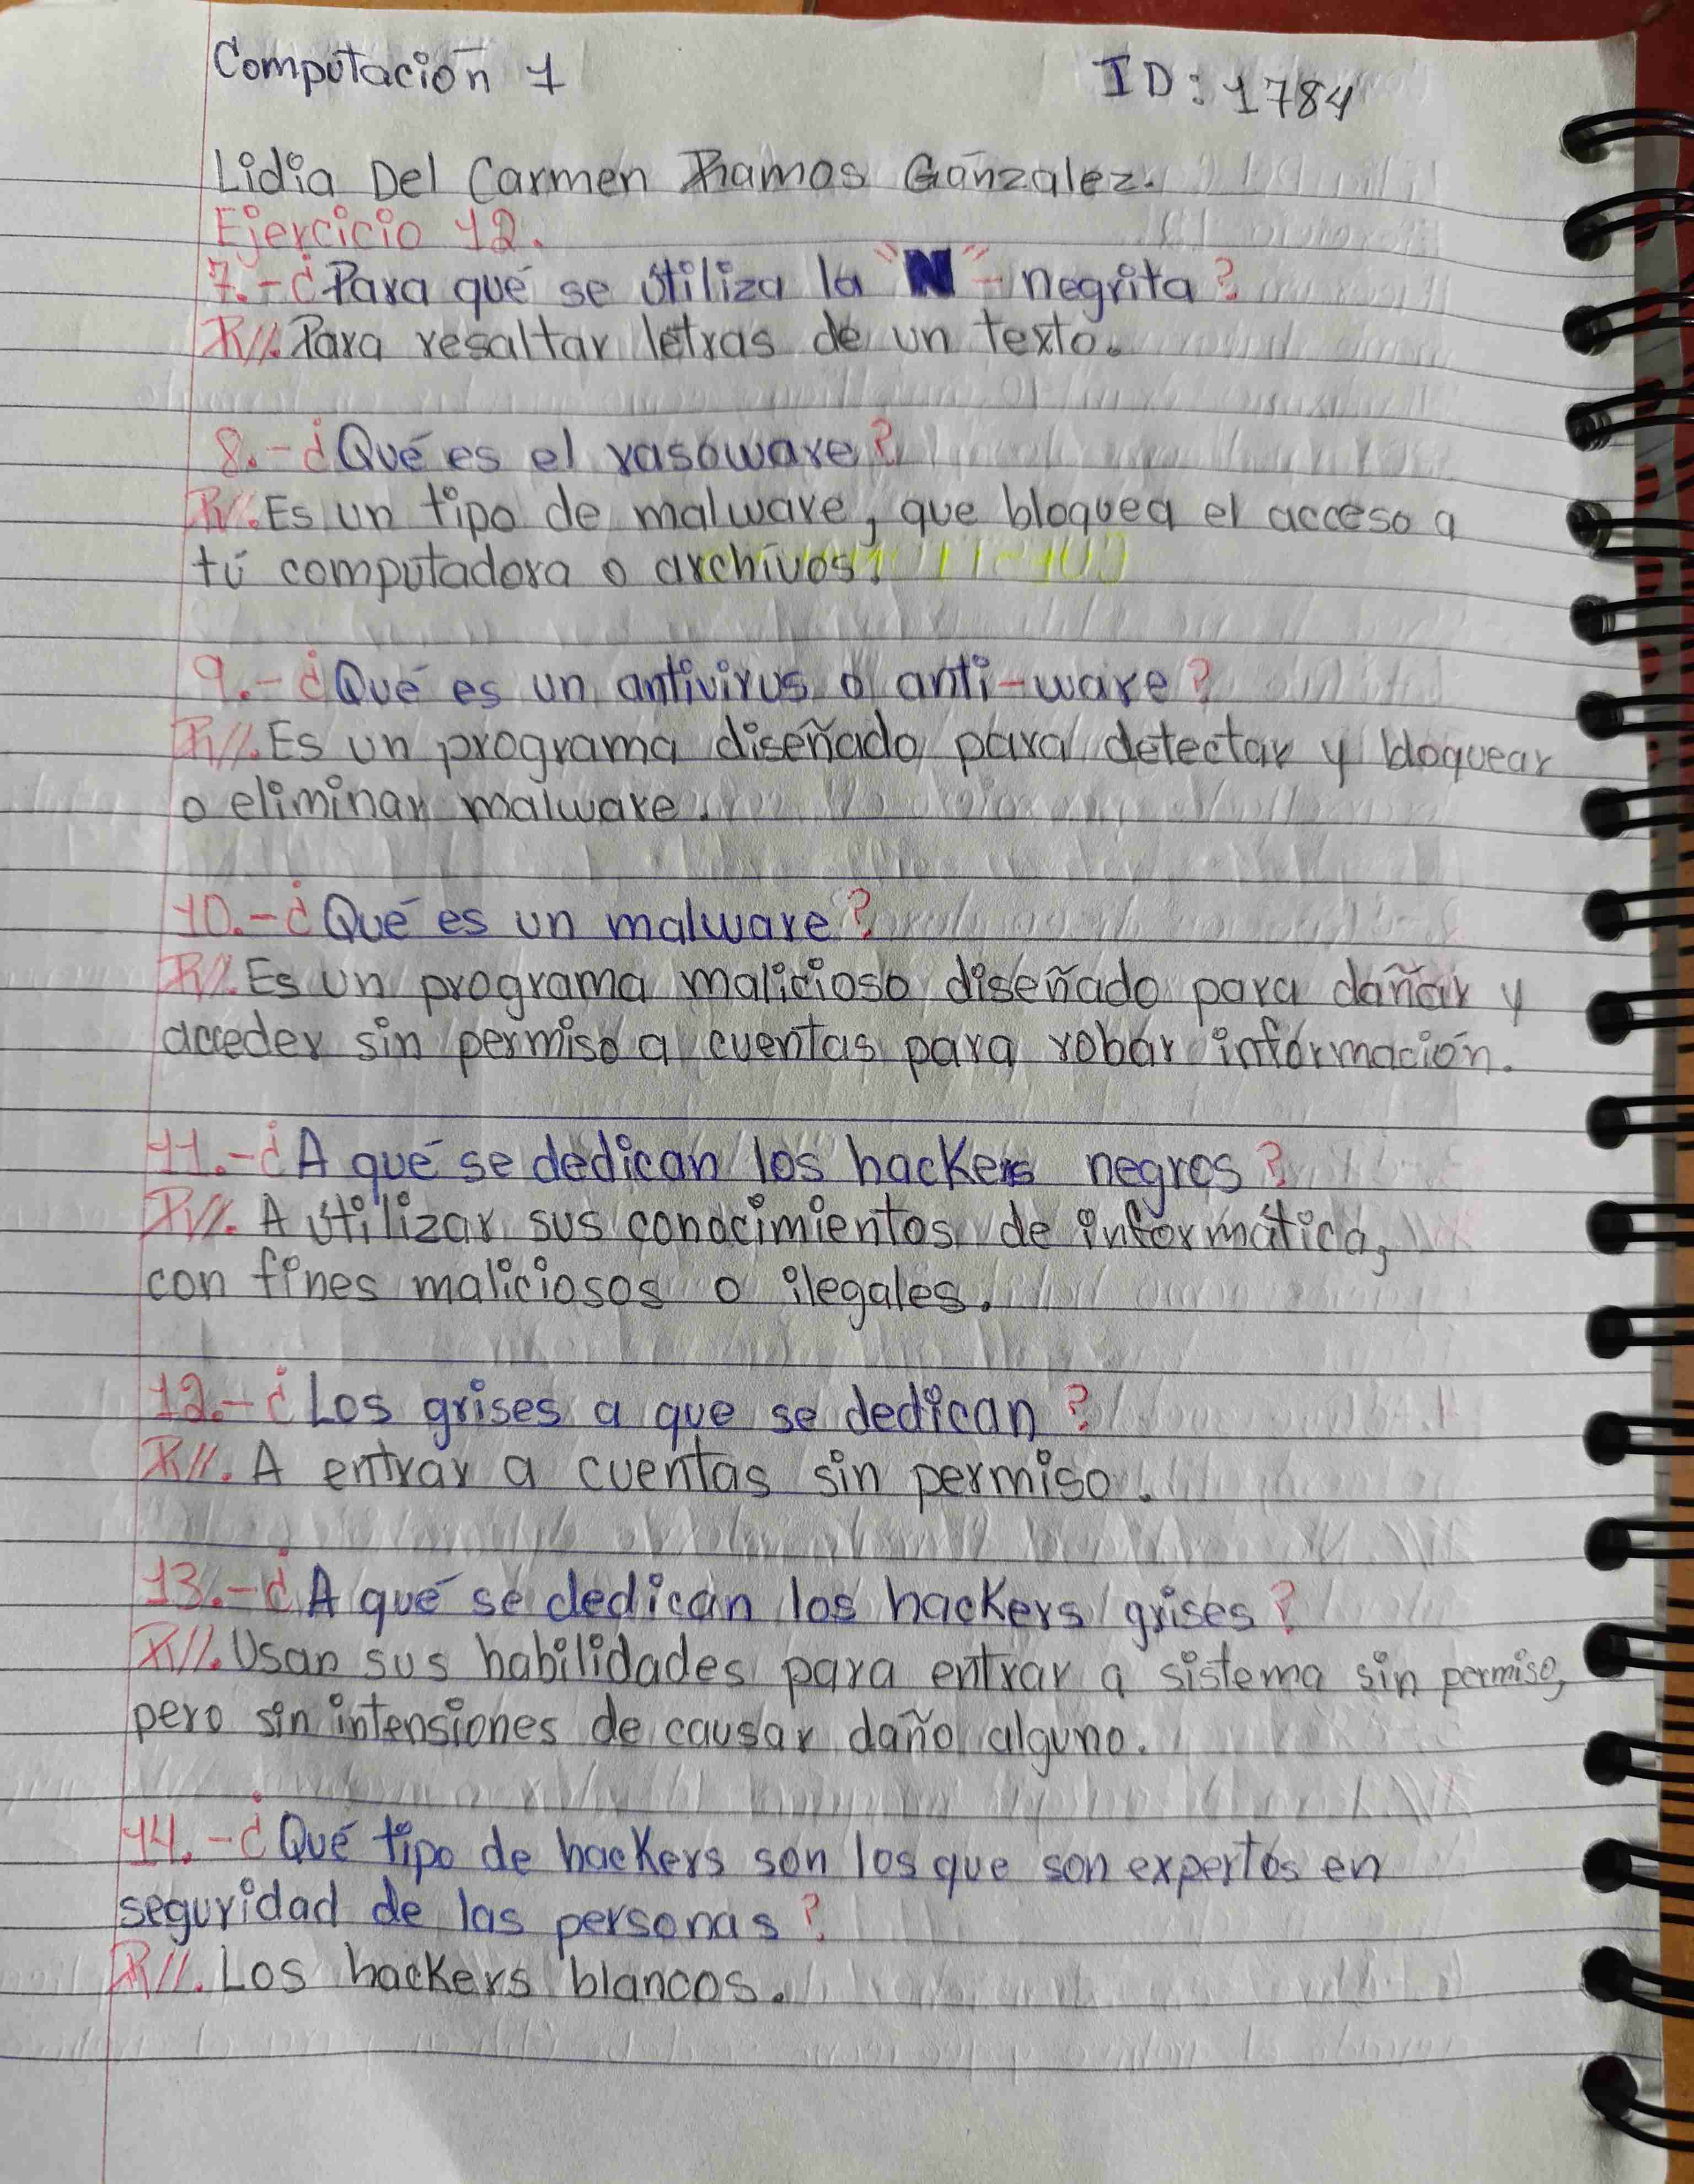 Computación 1
ID: 1784
Lidia Del Carmen Ramos Gonzalez.
Ejercicio 12.
7.-¿Para qué se utiliza la "N"- negrita?
R//. Para resaltar letras de un texto.
8.-¿Qué es el rasoware?
R//. Es un tipo de malware, que bloquea el acceso a
tú computadora o archivos.
9.-¿Qué es un antivirus o anti-ware?
R//. Es un programa diseñado para detectar y bloquear
o eliminar malware.
10.-¿Qué es un malware?
R//. Es un programa malicioso diseñado para dañar y
acceder sin permiso a cuentas para robar información.
11.-¿A qué se dedican los hackers negros?
R//. A utilizar sus conocimientos de informática,
con fines maliciosos o ilegales.
12.-¿Los grises a que se dedican?
R//. A entrar a cuentas sin permiso.
13.-¿A qué se dedican los hackers grises?
R//. Usan sus habilidades para entrar a sistema sin permiso,
pero sin intensiones de causar daño alguno.
14.-¿Qué tipo de hackers son los que son expertos en
seguridad de las personas?
R//. Los hackers blancos.